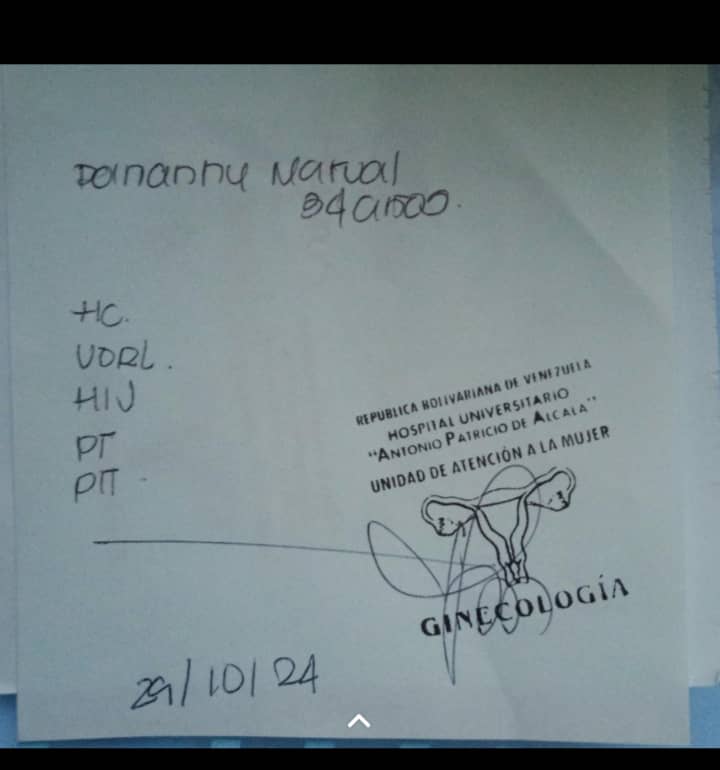 Dananny Marval
34 años.
HC.
VDRL.
HIV
PT
PTT
REPUBLICA BOLIVARIANA DE VENEZUELA
HOSPITAL UNIVERSITARIO
"ANTONIO PATRICIO DE ALCALA"
UNIDAD DE ATENCIÓN A LA MUJER
GINECOLOGÍA
29/10/24